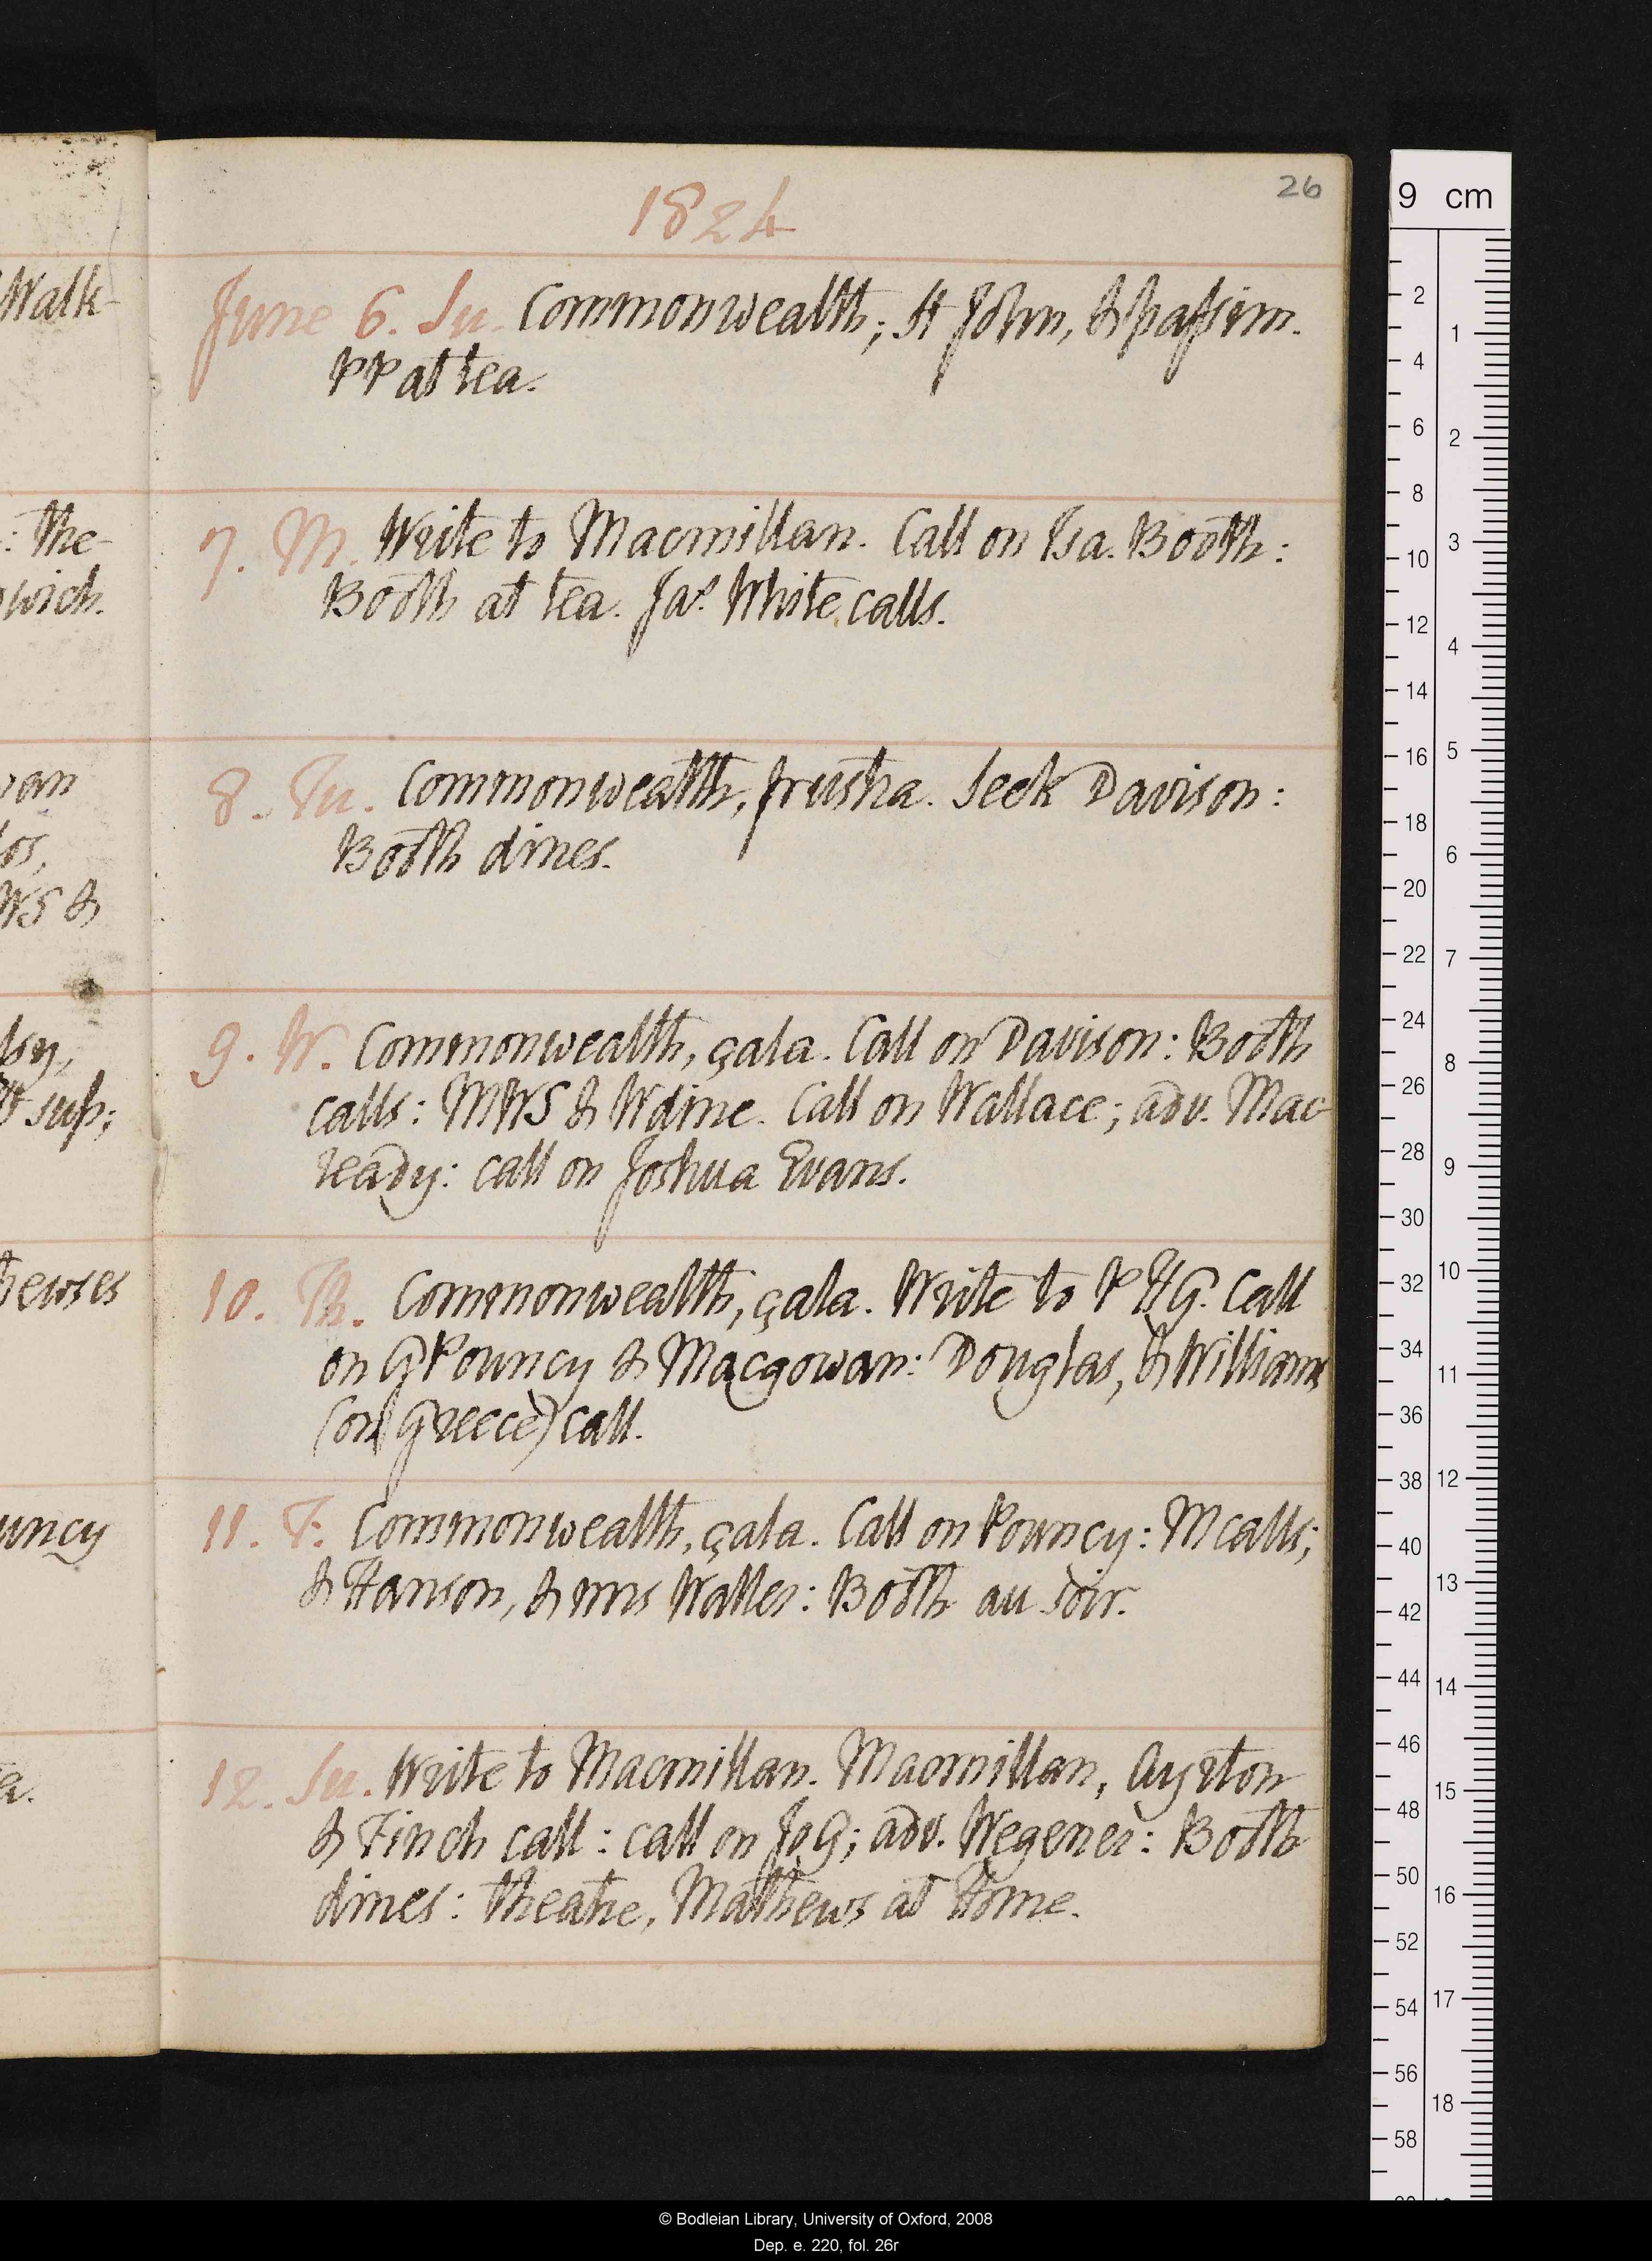 26
1824
June 6. Su. Commonwealth; St John, & passim.
PP at tea.
7. M. Write to Macmillan. Call on Isa. Booth:
Booth at tea. Jas White calls.
8. Tu. Commonwealth, frustra. Seek Davison:
Booth dines.
9. W. Commonwealth, çala. Call on Davison: Booth
calls: MWS & W dine. Call on Wallace; adv. Mac-
ready: call on Joshua Evans.
10. Th. Commonwealth, çala. Write to PHG. Call
on G Pouncy & Macgowan: Douglas, & Williams
(on Greece) call.
11. F. Commonwealth, çala. Call on Pouncy: M calls;
& Hanson, & mrs Walker: Booth au soir.
12. Su. Write to Macmillan. Macmillan, Ayrton
& Finch call: call on JoG; adv. Wegener: Booth
dines: theatre, Mathews at Home.
Walk-
: the-
wich.
van
los,
WS &
sup;
hewses
uncy
a.
9 cm
2 4 6 8 10 12 14 16 18 20 22 24 26 28 30 32 34 36 38 40 42 44 46 48 50 52 54 56 58
1 2 3 4 5 6 7 8 9 10 11 12 13 14 15 16 17 18
© Bodleian Library, University of Oxford, 2008
Dep. e. 220, fol. 26r